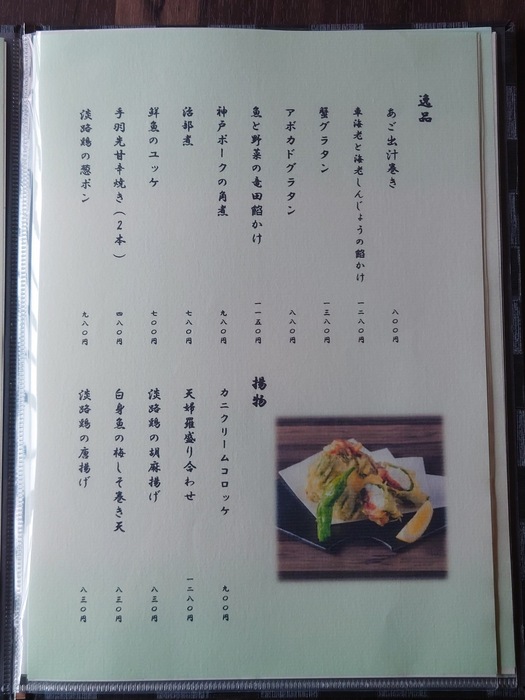 逸品
あご出汁巻き 八〇〇円
車海老と海老しんじょうの餡かけ 一二八〇円
蟹グラタン 一三八〇円
アボカドグラタン 八八〇円
魚と野菜の竜田餡かけ 一一五〇円
神戸ポークの角煮 九八〇円
治部煮 七八〇円
鮮魚のユッケ 七〇〇円
手羽先甘辛焼き（2本） 四八〇円
淡路鶏の葱ポン 九八〇円
揚物
カニクリームコロッケ 九〇〇円
天婦羅盛り合わせ 一二八〇円
淡路鶏の胡麻揚げ 八三〇円
白身魚の梅しそ巻き天 八三〇円
淡路鶏の唐揚げ 八三〇円